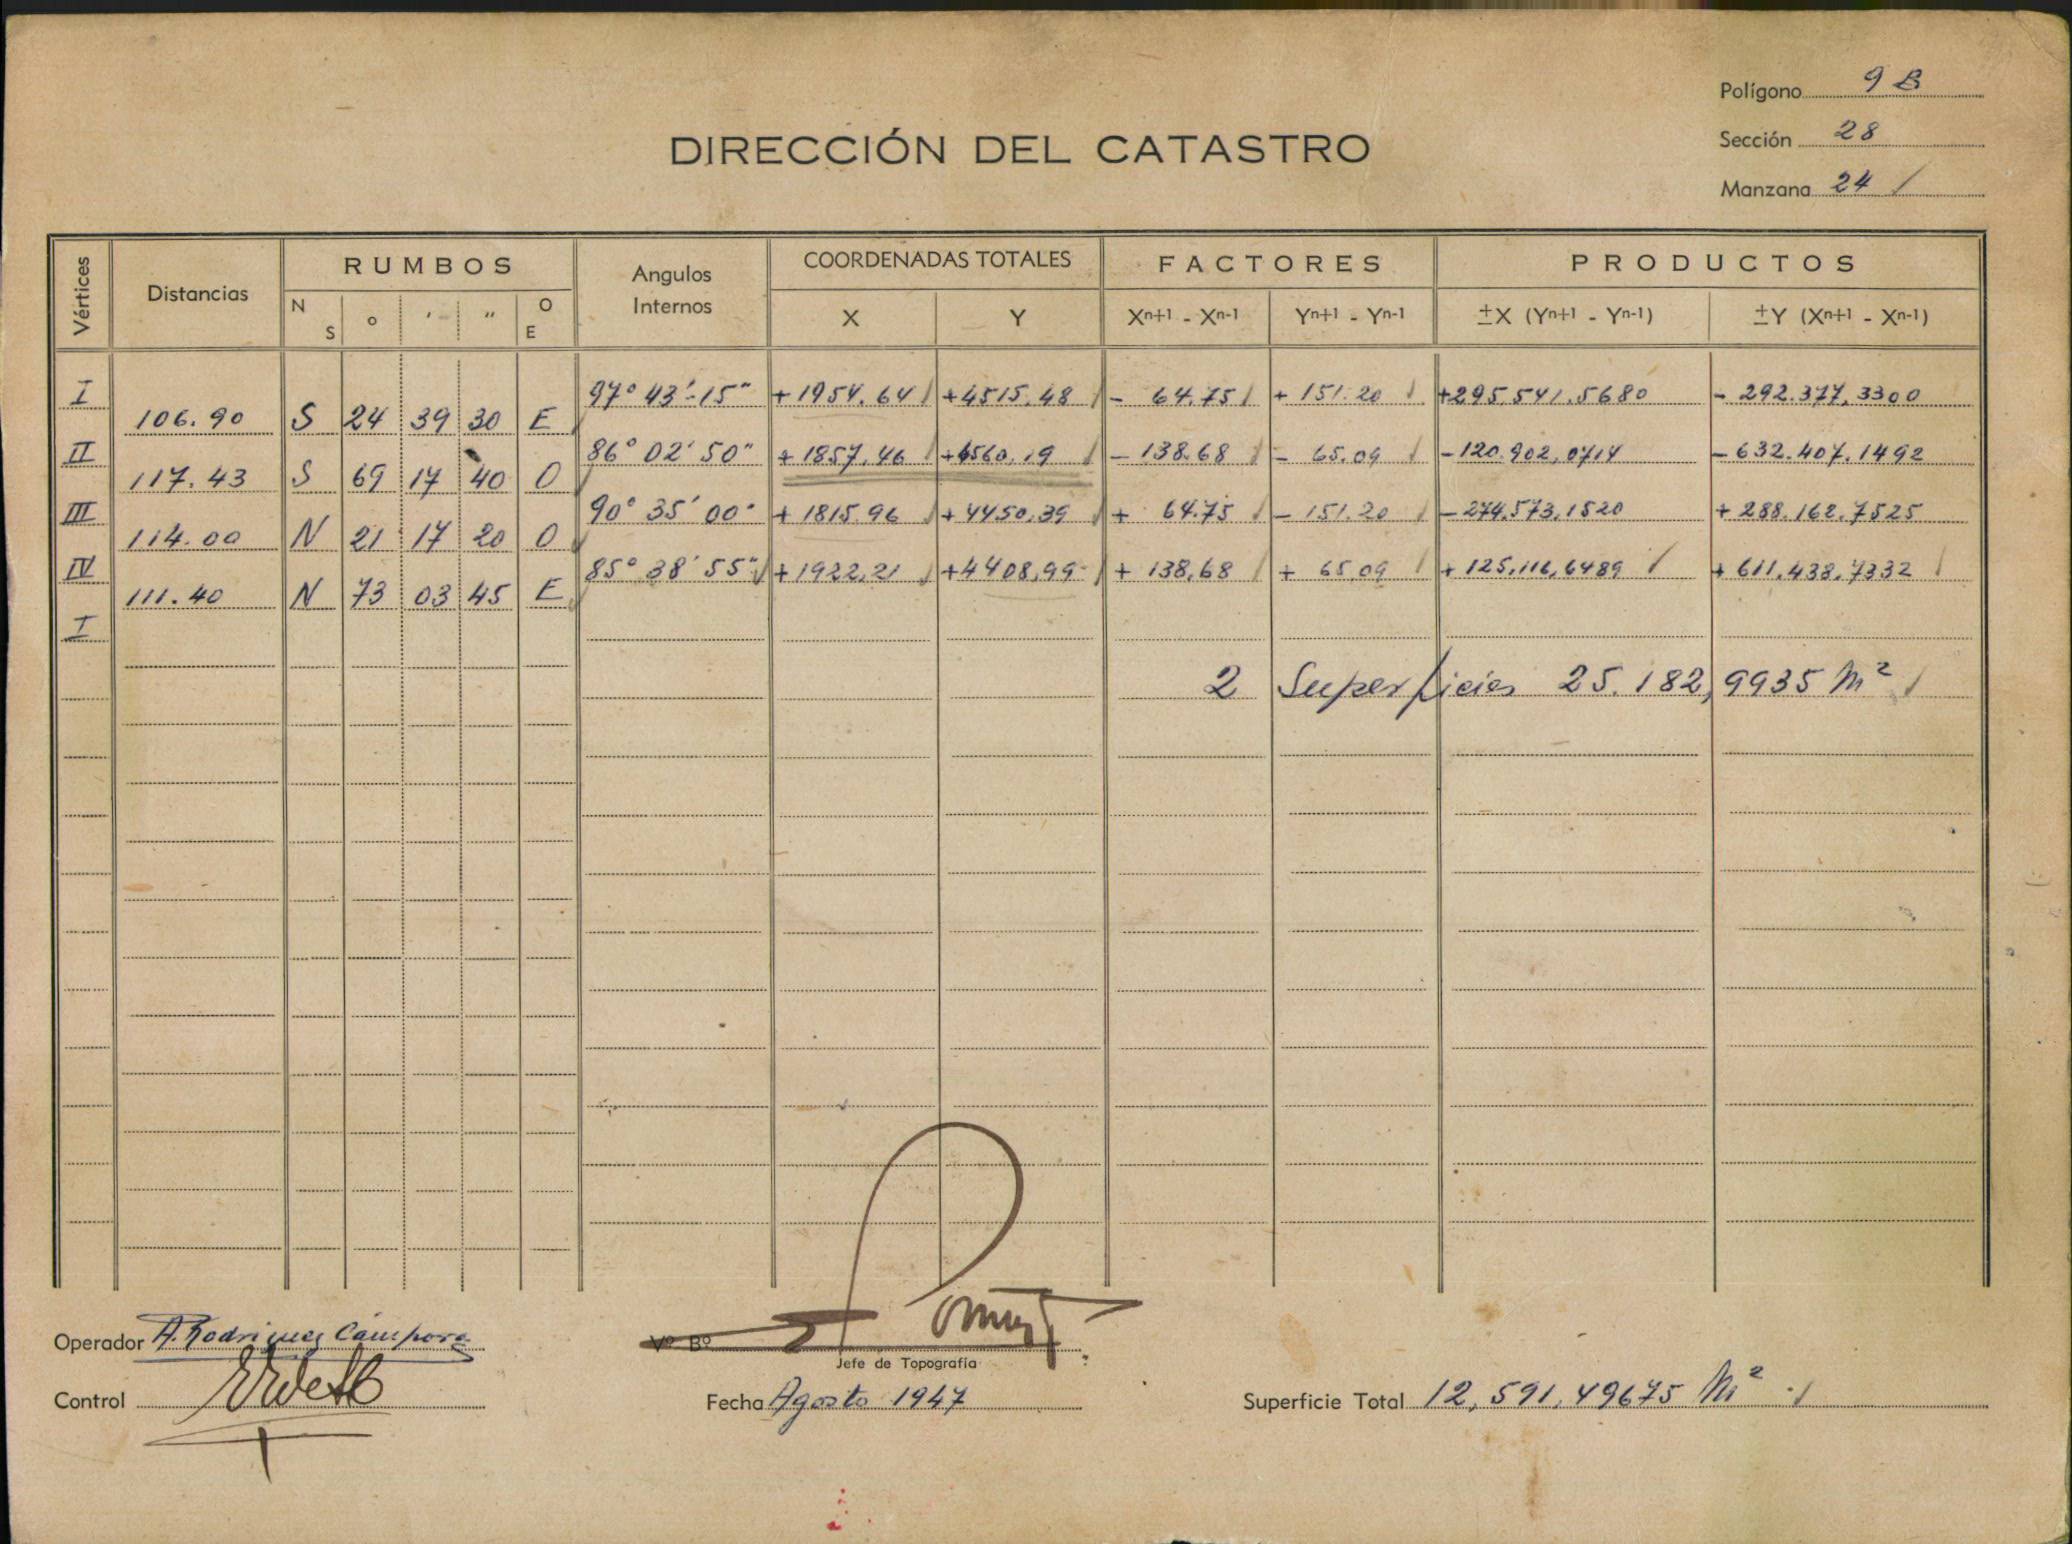 Polígono 9 B
Sección 28
Manzana 24
DIRECCIÓN DEL CATASTRO
Vértices Distancias RUMBOS Angulos Internos COORDENADAS TOTALES FACTORES PRODUCTOS
N S ° ' " O E X Y Xⁿ⁺¹ - Xⁿ⁻¹ Yⁿ⁺¹ - Yⁿ⁻¹ ±X (Yⁿ⁺¹ - Yⁿ⁻¹) ±Y (Xⁿ⁺¹ - Xⁿ⁻¹)
I 97° 43' 15" +1954.64 +4515.48 - 64.75 + 151.20 +295.541.5680 - 292.377.3300
106.90 S 24 39 30 E
II 86° 02' 50" +1857.46 +4560.19 -138.68 - 65.09 -120.902,0714 -632.407.1492
117.43 S 69 17 40 O
III 90° 35' 00" +1815.96 +4450.39 + 64.75 -151.20 -274.573.1520 +288.162.7525
114.00 N 21 17 20 O
IV 85° 38' 55" +1922.21 +4408,99 +138,68 + 65.09 +125.116,6489 +611.438.7332
111.40 N 73 03 45 E
I
2 Superficies 25.182,9935 M²
Operador A. Rodriguez Cámpora
Vº Bº
Jefe de Topografía
Control
Fecha Agosto 1947
Superficie Total 12,591,49675 M²